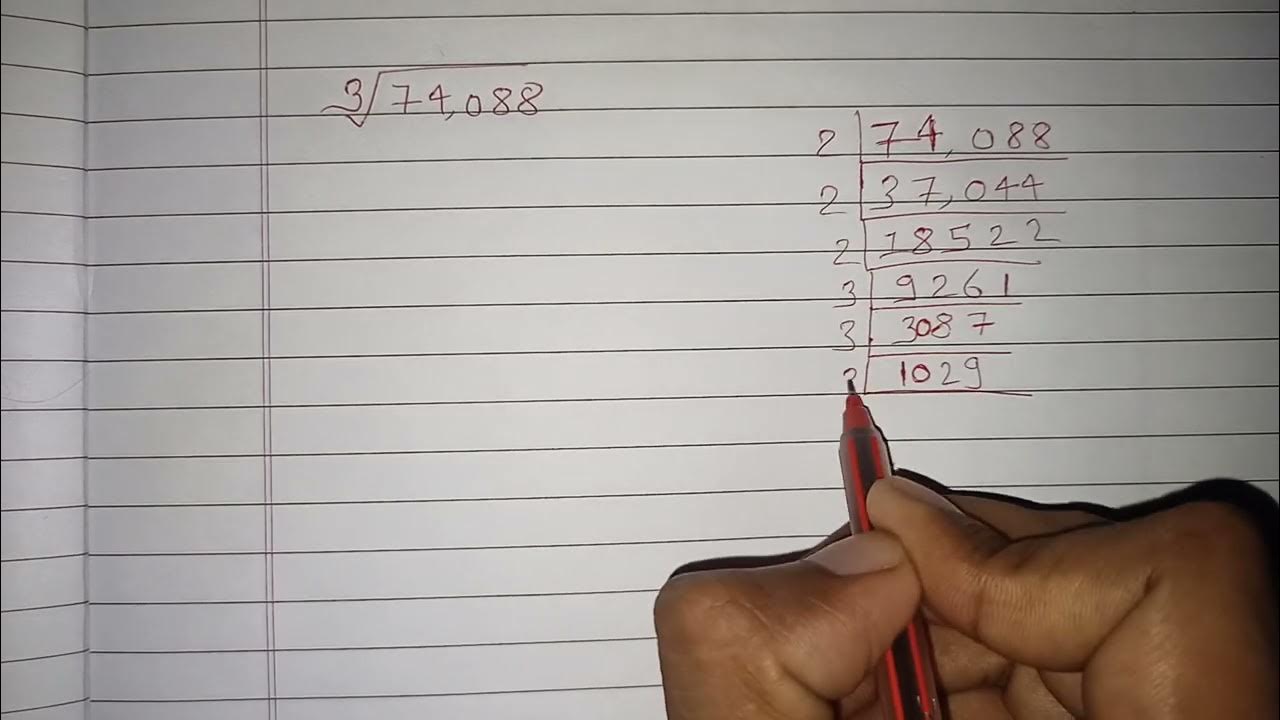 3√74,088
2 74,088
2 37,044
2 18522
3 9261
3 3087
1029